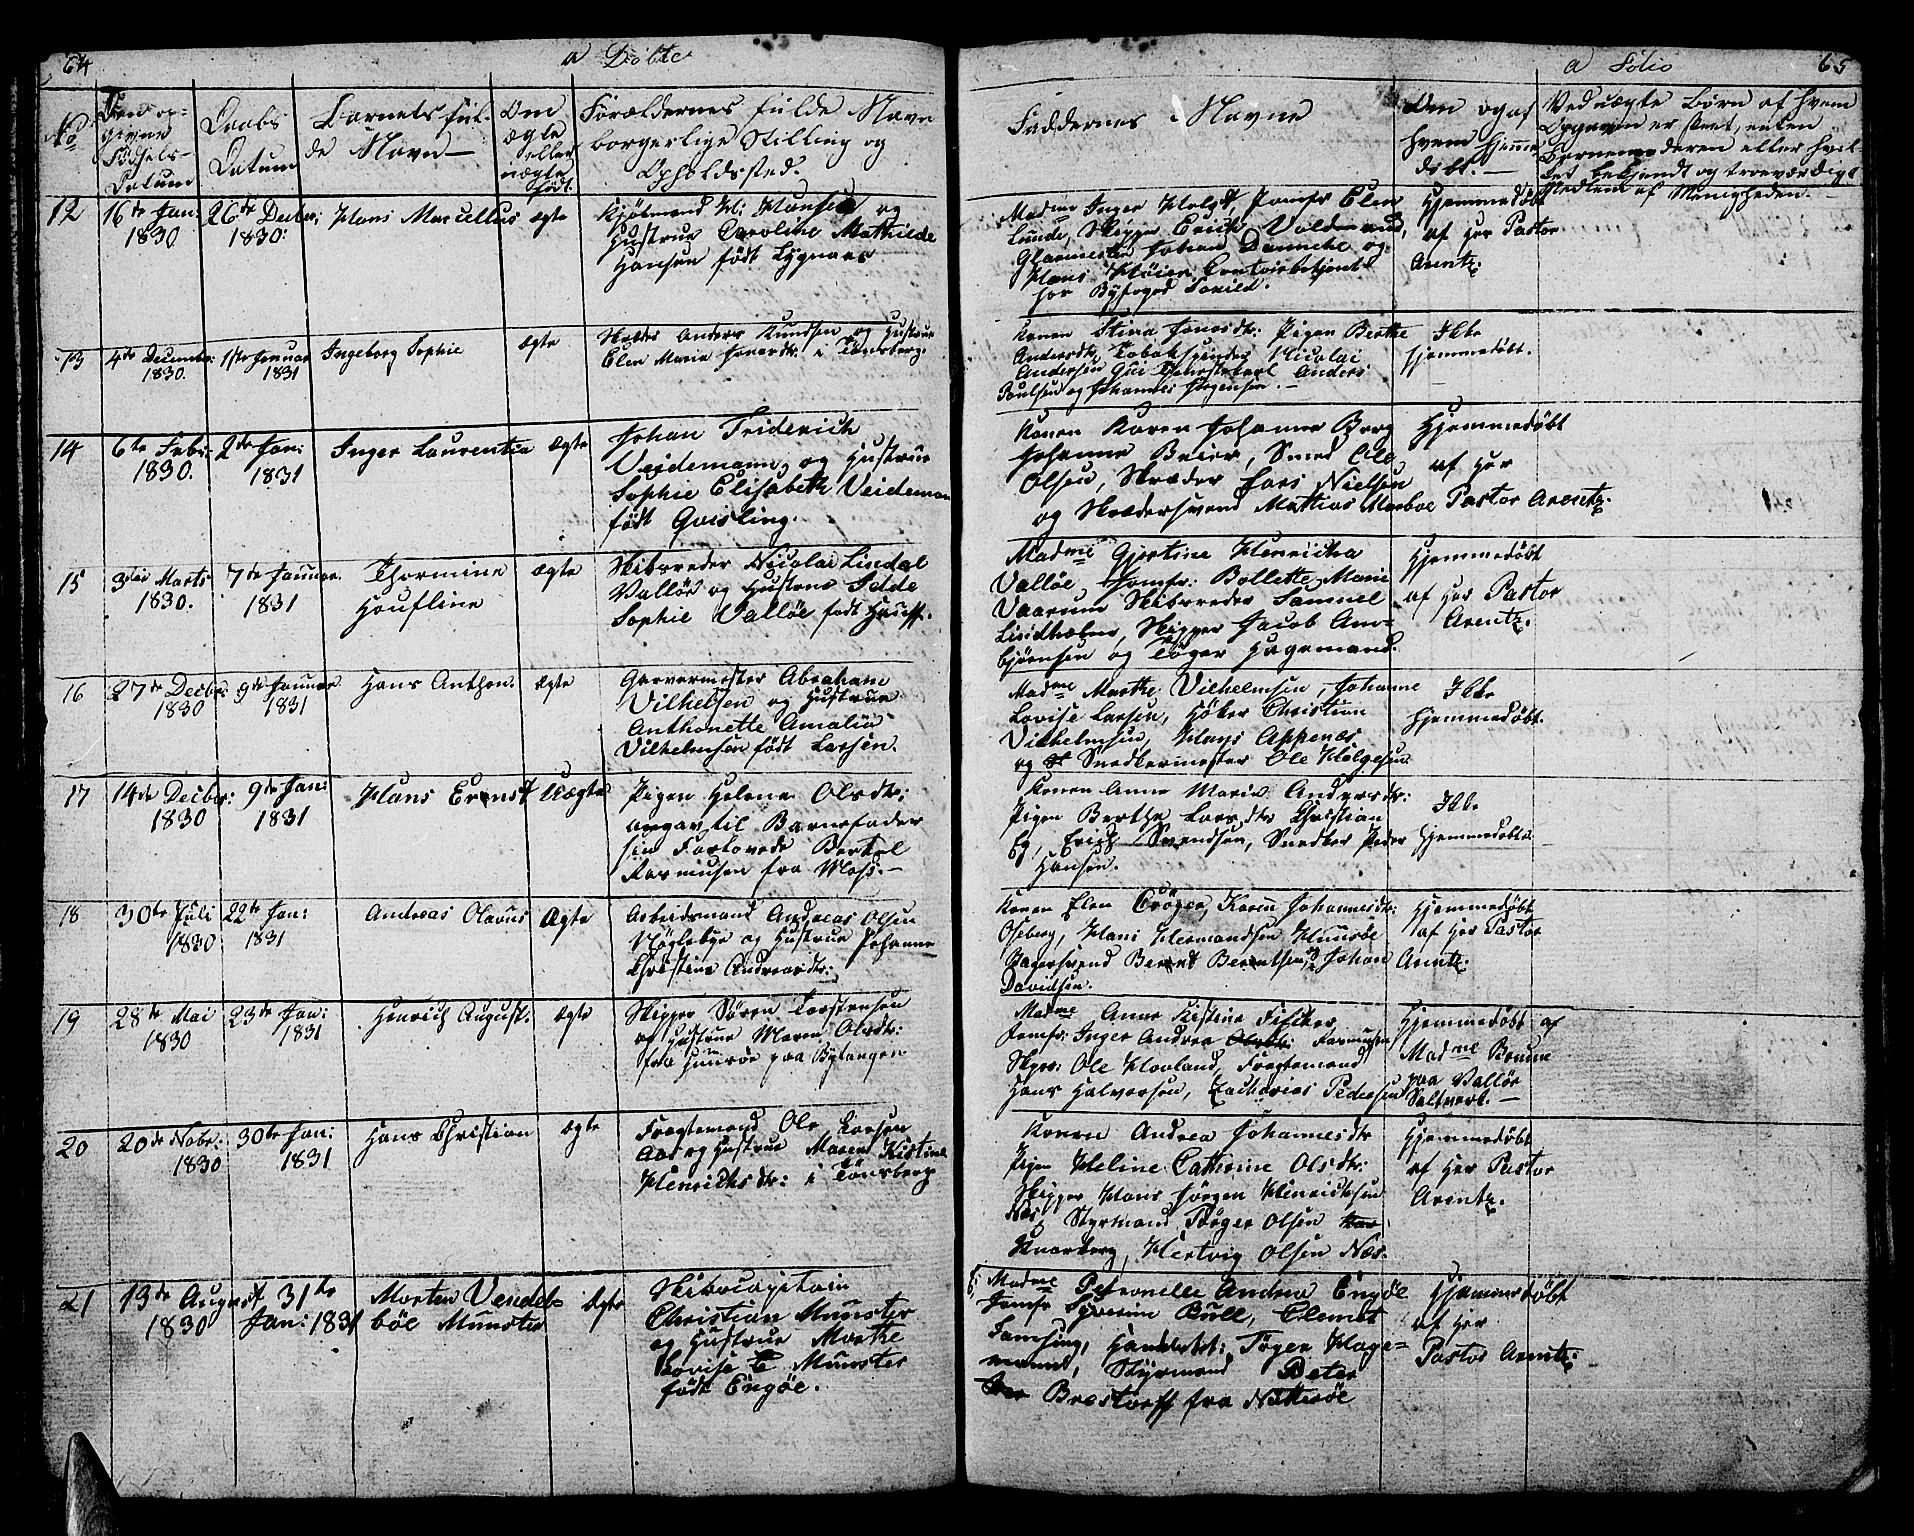 64
a Döbte
No
Den op-
givne
Fødsels-
Datum
Daabs
Datum
Barnets ful-
de Navn
Om
ægte
eller
uægte
født.
Forældernes fulde Navn
borgerlige Stilling og
Opholdssted.
12
16de Jan:
1830
26de Decbr:
1830:
Hans Marcellus
ægte
Kjøbmand H: Hansen og
Hustrue Caroline Mathilde
Hansen født Lygnars
13
4de Decembr:
1830.
1ste Januar
1831
Ingeborg Sophie
ægte
Skræder Anders Knudsen og Hustrue
Elen Maria Jonasdtr: i Tönsberg.
14
6te Febr:
1830.
2de Jan:
1831
Inger Laurentia
ægte
Johan Friderich
Veidemann og Hustrue
Sophie Elisabeth Veideman
født Qvisling.
15
3die Marts
1830.
7de Januar.
1831
Thormine
Houfline
ægte
Skibsreder Nicolai Lindal
Valløe og Hustrue Idde
Sophie Valløe født Hauff.
16
27de Decbr:
1830
9de Januar
1831
Hans Anthon.
ægte
Garvermester Abraham
Vilhelsen og Hustrue
Anthonette Amalia
Vilhelmsen født Larsen.
17
14de Decbr:
1830
9de Jan:
1831
Hans Ernst
Uægte
Pigen Helene Olsdtr:
angav til Barnefader
sin Forlovede Bertel
Rasmusen fra Moss.
18
30te Juli
1830
22de Jan:
1831
Andreas Olavus
Ægte
Arbeidsmand Andreas Olsen
Nøglebye og Hustrue Johanne
Christine Andreasdtr:
19
28de Mai
1830
23de Jan:
1831
Henrich August.
ægte
Skipper Søren Torstensen
og Hustrue Maren Olsdtr:
fra Huusøe paa Bytangen
20
20de Novbr:
1830
30te Jan:
1831
Hans Christian
ægte
Fragtemand Ole Larsen
Aas og Hustrue Maren Kistine
Henrichsdtr: i Tönsberg
21
13de August
1830
31te
Jan: 1831
Morten Vendel-
böe Munster
Ægte
Skibscapitain
Christian Munster
og Hustrue Marthe
Lovise Munster
født Engöe.
a Folio
65
Faddernes Navne
Om og af
hvem hjemme-
døbt.
Ved uægte Børn af hvem
Opgaven er skeet, enten
Barnemoderen eller hvil-
ket bekjendt og troeværdigt
Medlem af Menigheden.
Madme Inger Holst Jomfr Elen
Lunde, Skipper Erich Voldmand,
Glarmester Johan Danneke og
Hans Høier, Contoirbetjent
hos Byfoged Forild.
Hjemmedøbt
af Her Pastor
Arentz.
Konen Stina Jonasdtr: Pigen Berthe
Andersdtr, Tobakspinder Nicolai
Andersen Anders
Poulsen og Johannes Jørgensen.
Ikke
hjemmedøbt.
Konen Karen Johanne Berg
Johanne Beier, Smed Ole
Olsen, Skræder Lars Nielsen
og Skrædersvend Mathias Marboe
Hjemmedøbt
af Her
Pastor Arentz.
Madme Gjertine Henricha
Valløe, Jomfr: Bollette Marie
Vaarum Skibsreder Samuel
Lindholm, Skipper Jacob Am-
bjørnsen og Töger Hagemand.
Hjemmedøbt
af Her Pastor
Arentz.
Madme Marthe Vilhelmsen, Johanne
Lovise Larsen, Høker Christian
Vilhelmsen, Hans Appenæs
og Snedkermester Ole Helgesen
Ikke
hjemmedøbt.
Konen Anne Maria Andersdtr:
Pigen Berthe Larsdtr Christian
Eg, Erich Svendsen, Snedker Peder
Hansen.
Ikke
hjemmedøbt.
Konen Elen Cröger, Karen Johannesdtr:
Oseberg, Hans Hermandsen Huusøe
Bagersvend Bernt Berntsen, Johan
Davidsen.
Hjemmedøbt
af Her Pastor
Arentz.
Madme Anne Kistine Fisker
Jomfr: Inger Andrea Rasmusen
Skpr: Ole Hovland, Fragtemand
Hans Halvorsen, Zacharias Pedersen
Hjemmedøbt af
Madme Bruun
paa Valløe
Saltverk.
Konen Andrea Johannesdtr
Pigen Heline Cathrine Olsdtr:
Skipper Hans Jørgen Henrichsen
Næs, Styrmand Töger Olsen
Knarberg, Hertvig Olsen Næs.
Hjemmedøbt
af Her Pastor
Arentz.
Madme Petronelle Andrea Engöe
Jomfr Severine Bull, Clemet
Famsing, Handelsbt: Töger Hage-
mand, Styrmand Peter
Brestorff fra Nötteröe
Hjemmedøbt
af Her
Pastor Arentz.